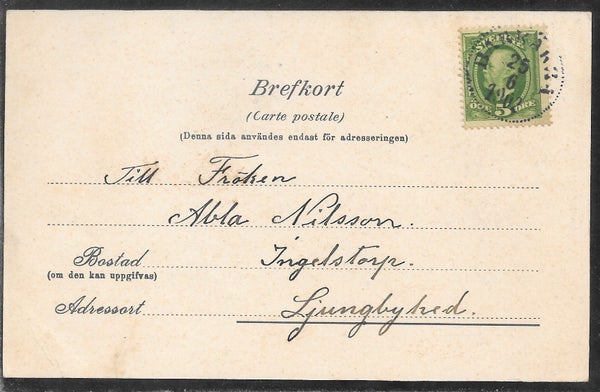 Brefkort
(Carte postale)
(Denna sida användes endast för adresseringen)
Till Fröken
Abla Nilsson.
Bostad Ingelstorp.
(om den kan uppgifvas)
Adressort Ljungbyhed.
SVERIGE
ÖRE 5 ÖRE
25
6